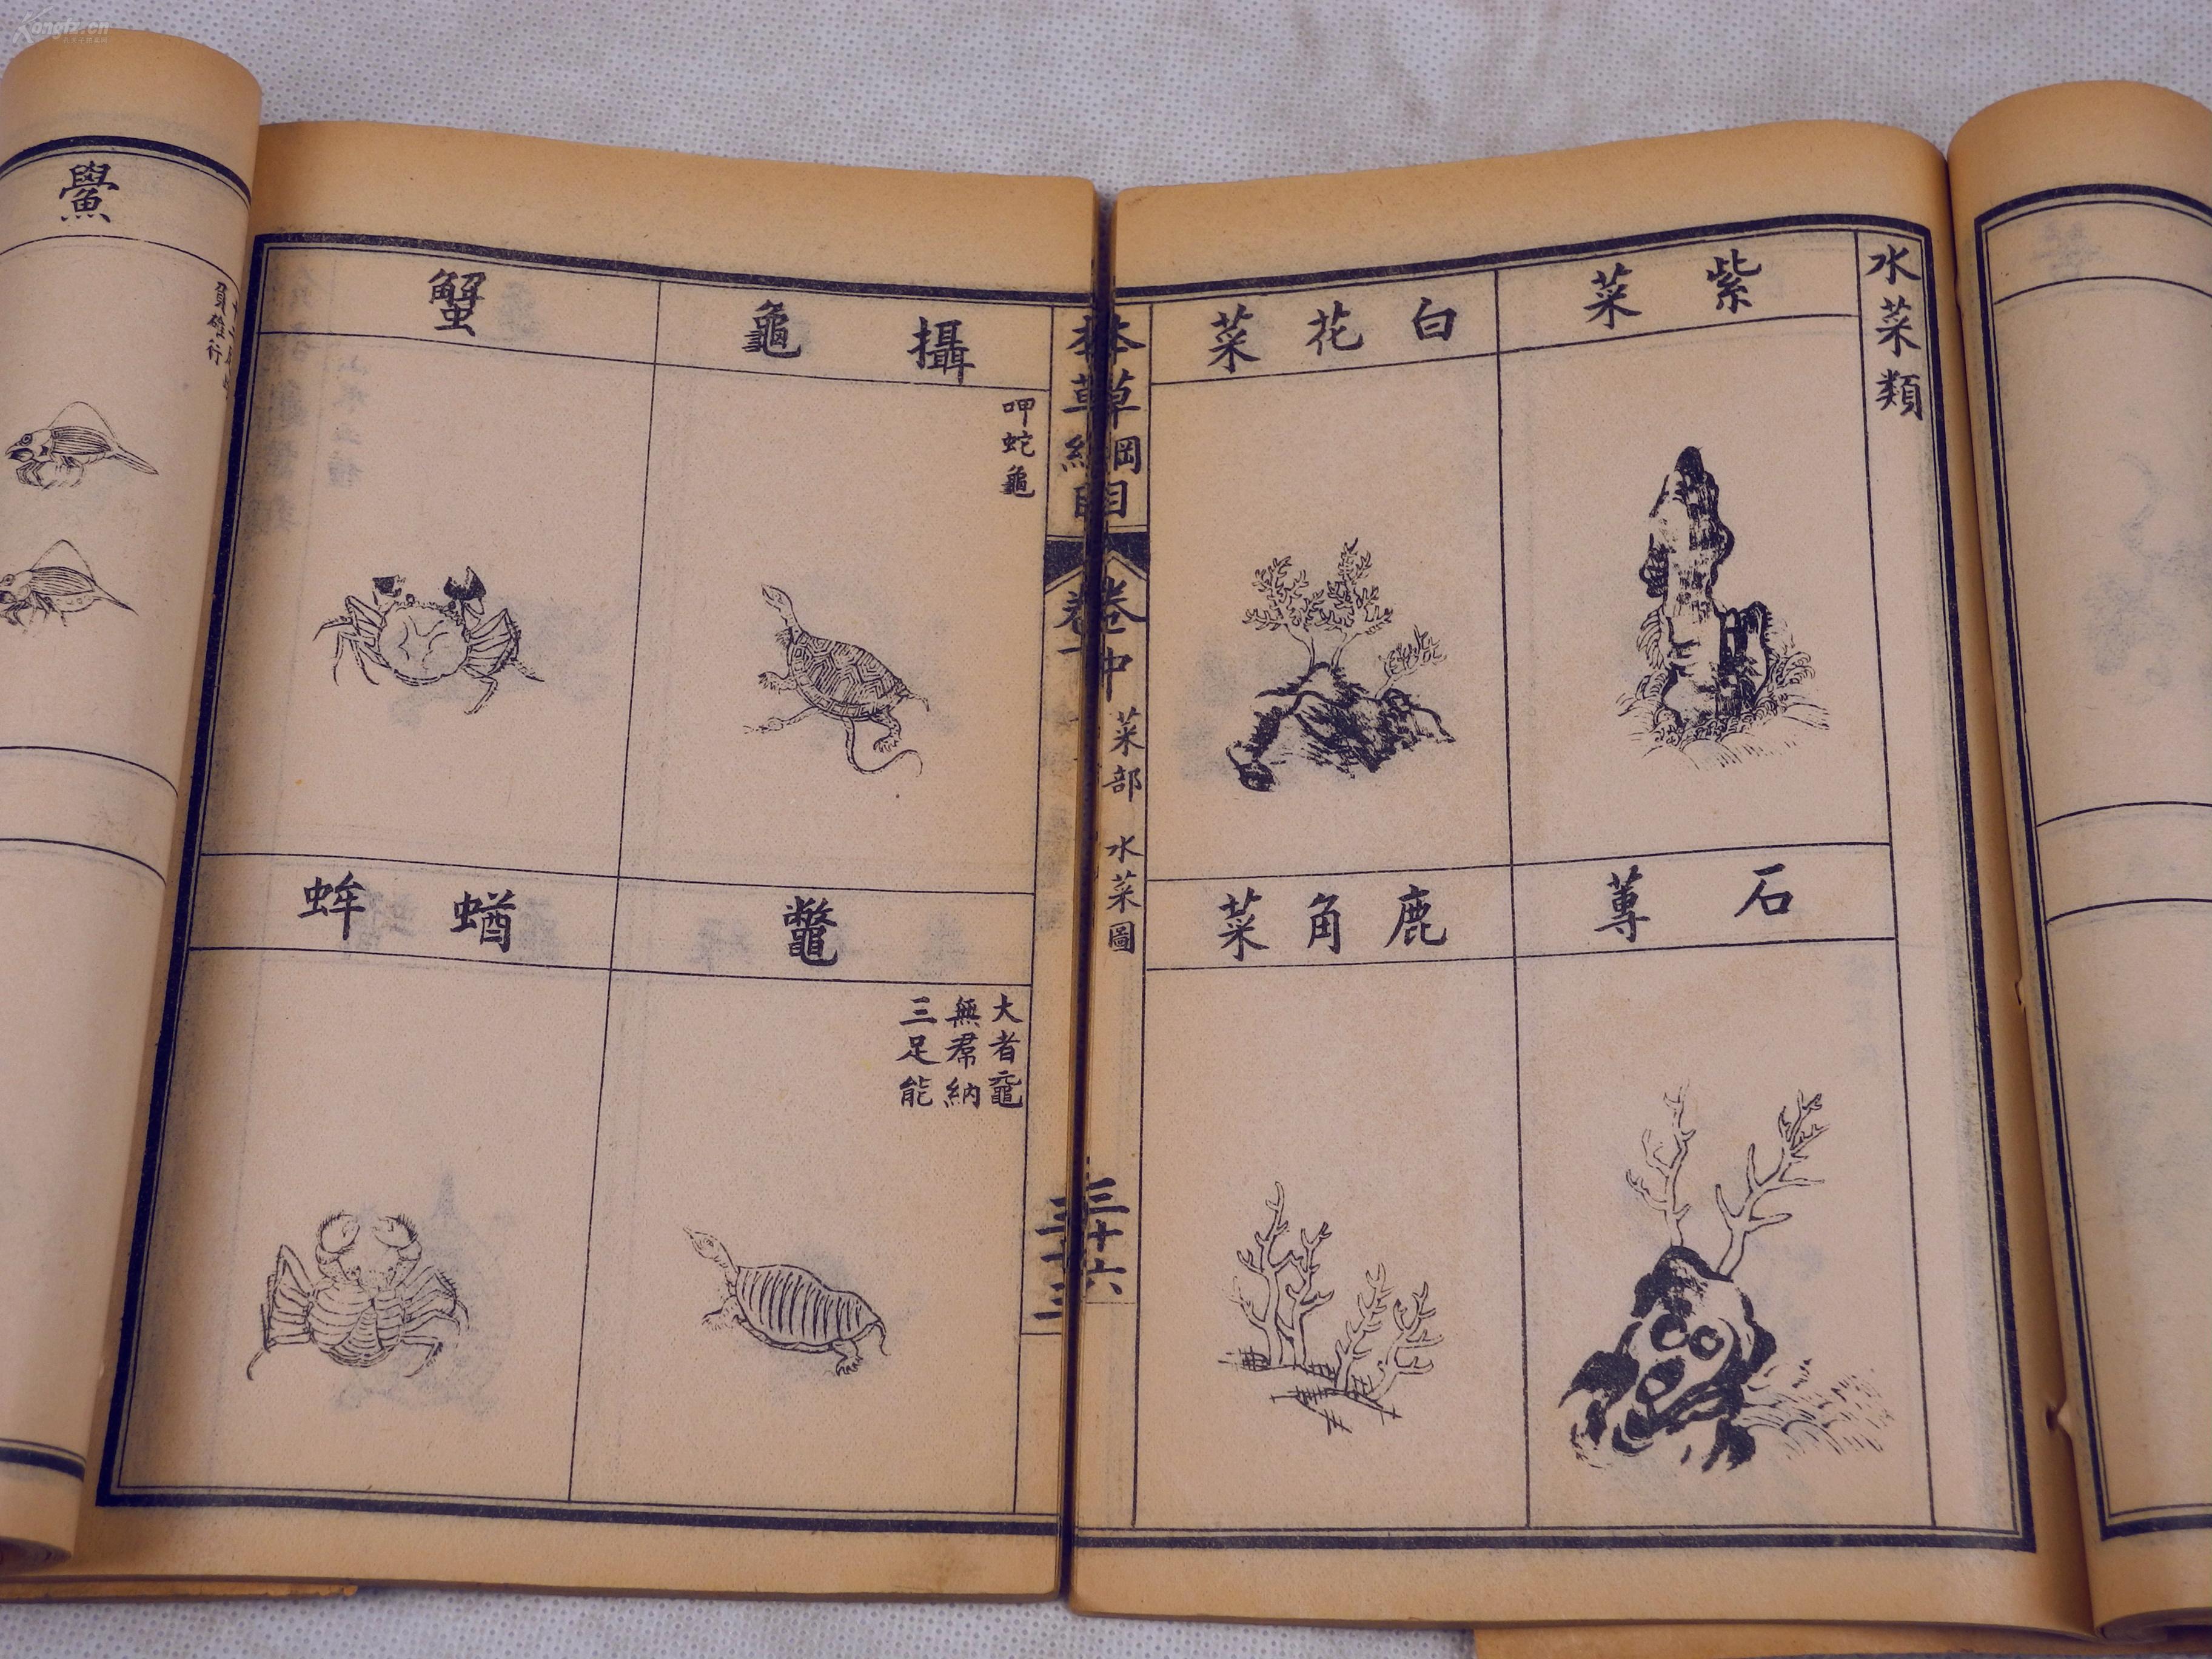 Kongfz.cn
水菜類
紫菜
白花菜
石蓴
鹿角菜
本草綱目
卷中
菜部
水菜圖
三十六
攝龜
呷蛇龜
蟹
鼈
大者黿
無裙納
三足能
蝤蛑
鱟
負雄行